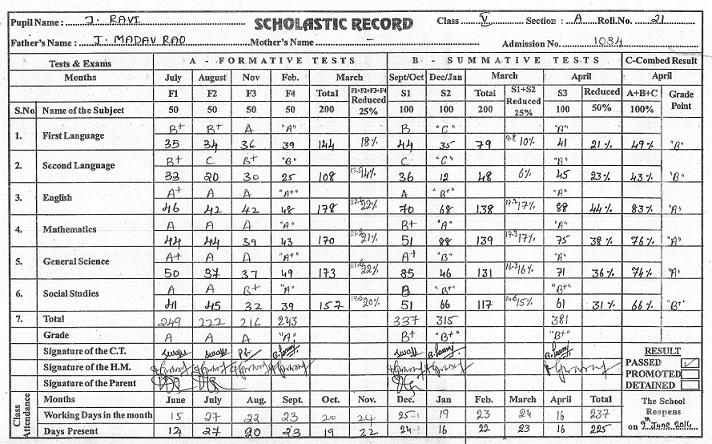 Pupil Name : J. RAVI SCHOLASTIC RECORD Class V Section : A Roll.No. 21
Father's Name : J. MADAV RAO Mother's Name : - Admission No. 1034
Tests & Exams A - FORMATIVE TESTS B - SUMMATIVE TESTS C-Combed Result
Months July August Nov Feb. March Sept/Oct Dec/Jan March April April
F1 F2 F3 F4 Total F1+F2+F3+F4 Reduced 25% S1 S2 Total S1+S2 Reduced 25% S3 Reduced A+B+C Grade Point
S.No Name of the Subject 50 50 50 50 200 100 100 200 100 50% 100%
1. First Language B+ B+ A "A" B "C" "B"
35 34 36 39 144 18% 44 35 79 10% 41 21% 49% "B"
2. Second Language B+ C B+ "B" C "C" "B"
33 20 30 25 108 14% 36 12 48 6% 45 23% 43% "B"
3. English A+ A A "A+" A "B+" "A"
46 42 42 48 178 22% 70 68 138 17% 88 44% 83% "A"
4. Mathematics A A A "A" B+ "A" "A"
44 44 39 43 170 21% 51 88 139 17% 75 38% 76% "A"
5. General Science A+ A A "A+" A+ "B" "A"
50 37 37 49 173 22% 85 46 131 16% 71 36% 74% "A"
6. Social Studies A A B+ "A" B "B+" "B+"
41 45 32 39 157 20% 51 66 117 15% 61 31% 66% "B+"
7. Total 249 222 216 243 337 315 381
Grade A A A "A" B+ "B+" "B+"
Signature of the C.T. RESULT
Signature of the H.M. PASSED ✓
Signature of the Parent PROMOTED
DETAINED
Class Attendance Months June July Aug. Sept. Oct. Nov. Dec. Jan Feb. March April Total The School Reopens on 9 June 2014
Working Days in the month 15 27 22 23 20 24 25 19 23 24 16 237
Days Present 12 27 20 23 19 22 24 16 22 23 16 225